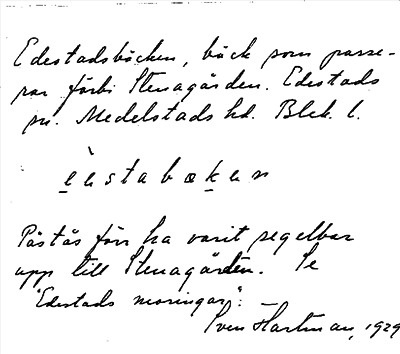 Edestadsbäcken, bäck som passe-
rar förbi Stenagården. Edestads
sn. Medelstads hd. Blek. l.
èestabæken
Påstås förr ha varit segelbar
upp till Stenagården. Se
"Edestads moringar".
Sven Hartman, 1929